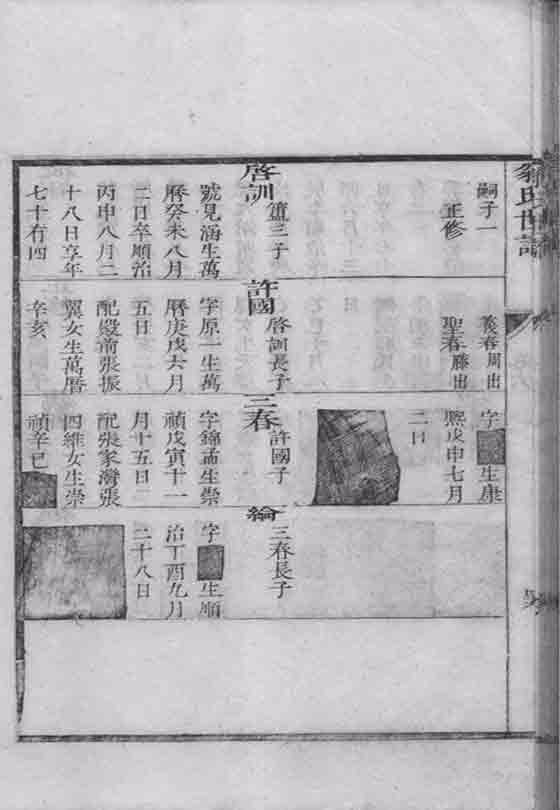 氏世譜
嗣子一
正修
義春周出
聖春滕出
字
生康
熙戊申七月
二日
啓訓
簠三子
號見涵生萬
曆癸未八月
二日卒順治
丙申八月二
十八日享年
七十有四
許國
啓訓長子
字原一生萬
曆庚戌六月
五日
配殿前張振
翼女生萬曆
辛亥
三春
許國子
字錦孟生崇
禎戊寅十一
月十五日
配張家灣張
四維女生崇
禎辛巳
綸
三春長子
字
生順
治丁酉九月
二十八日